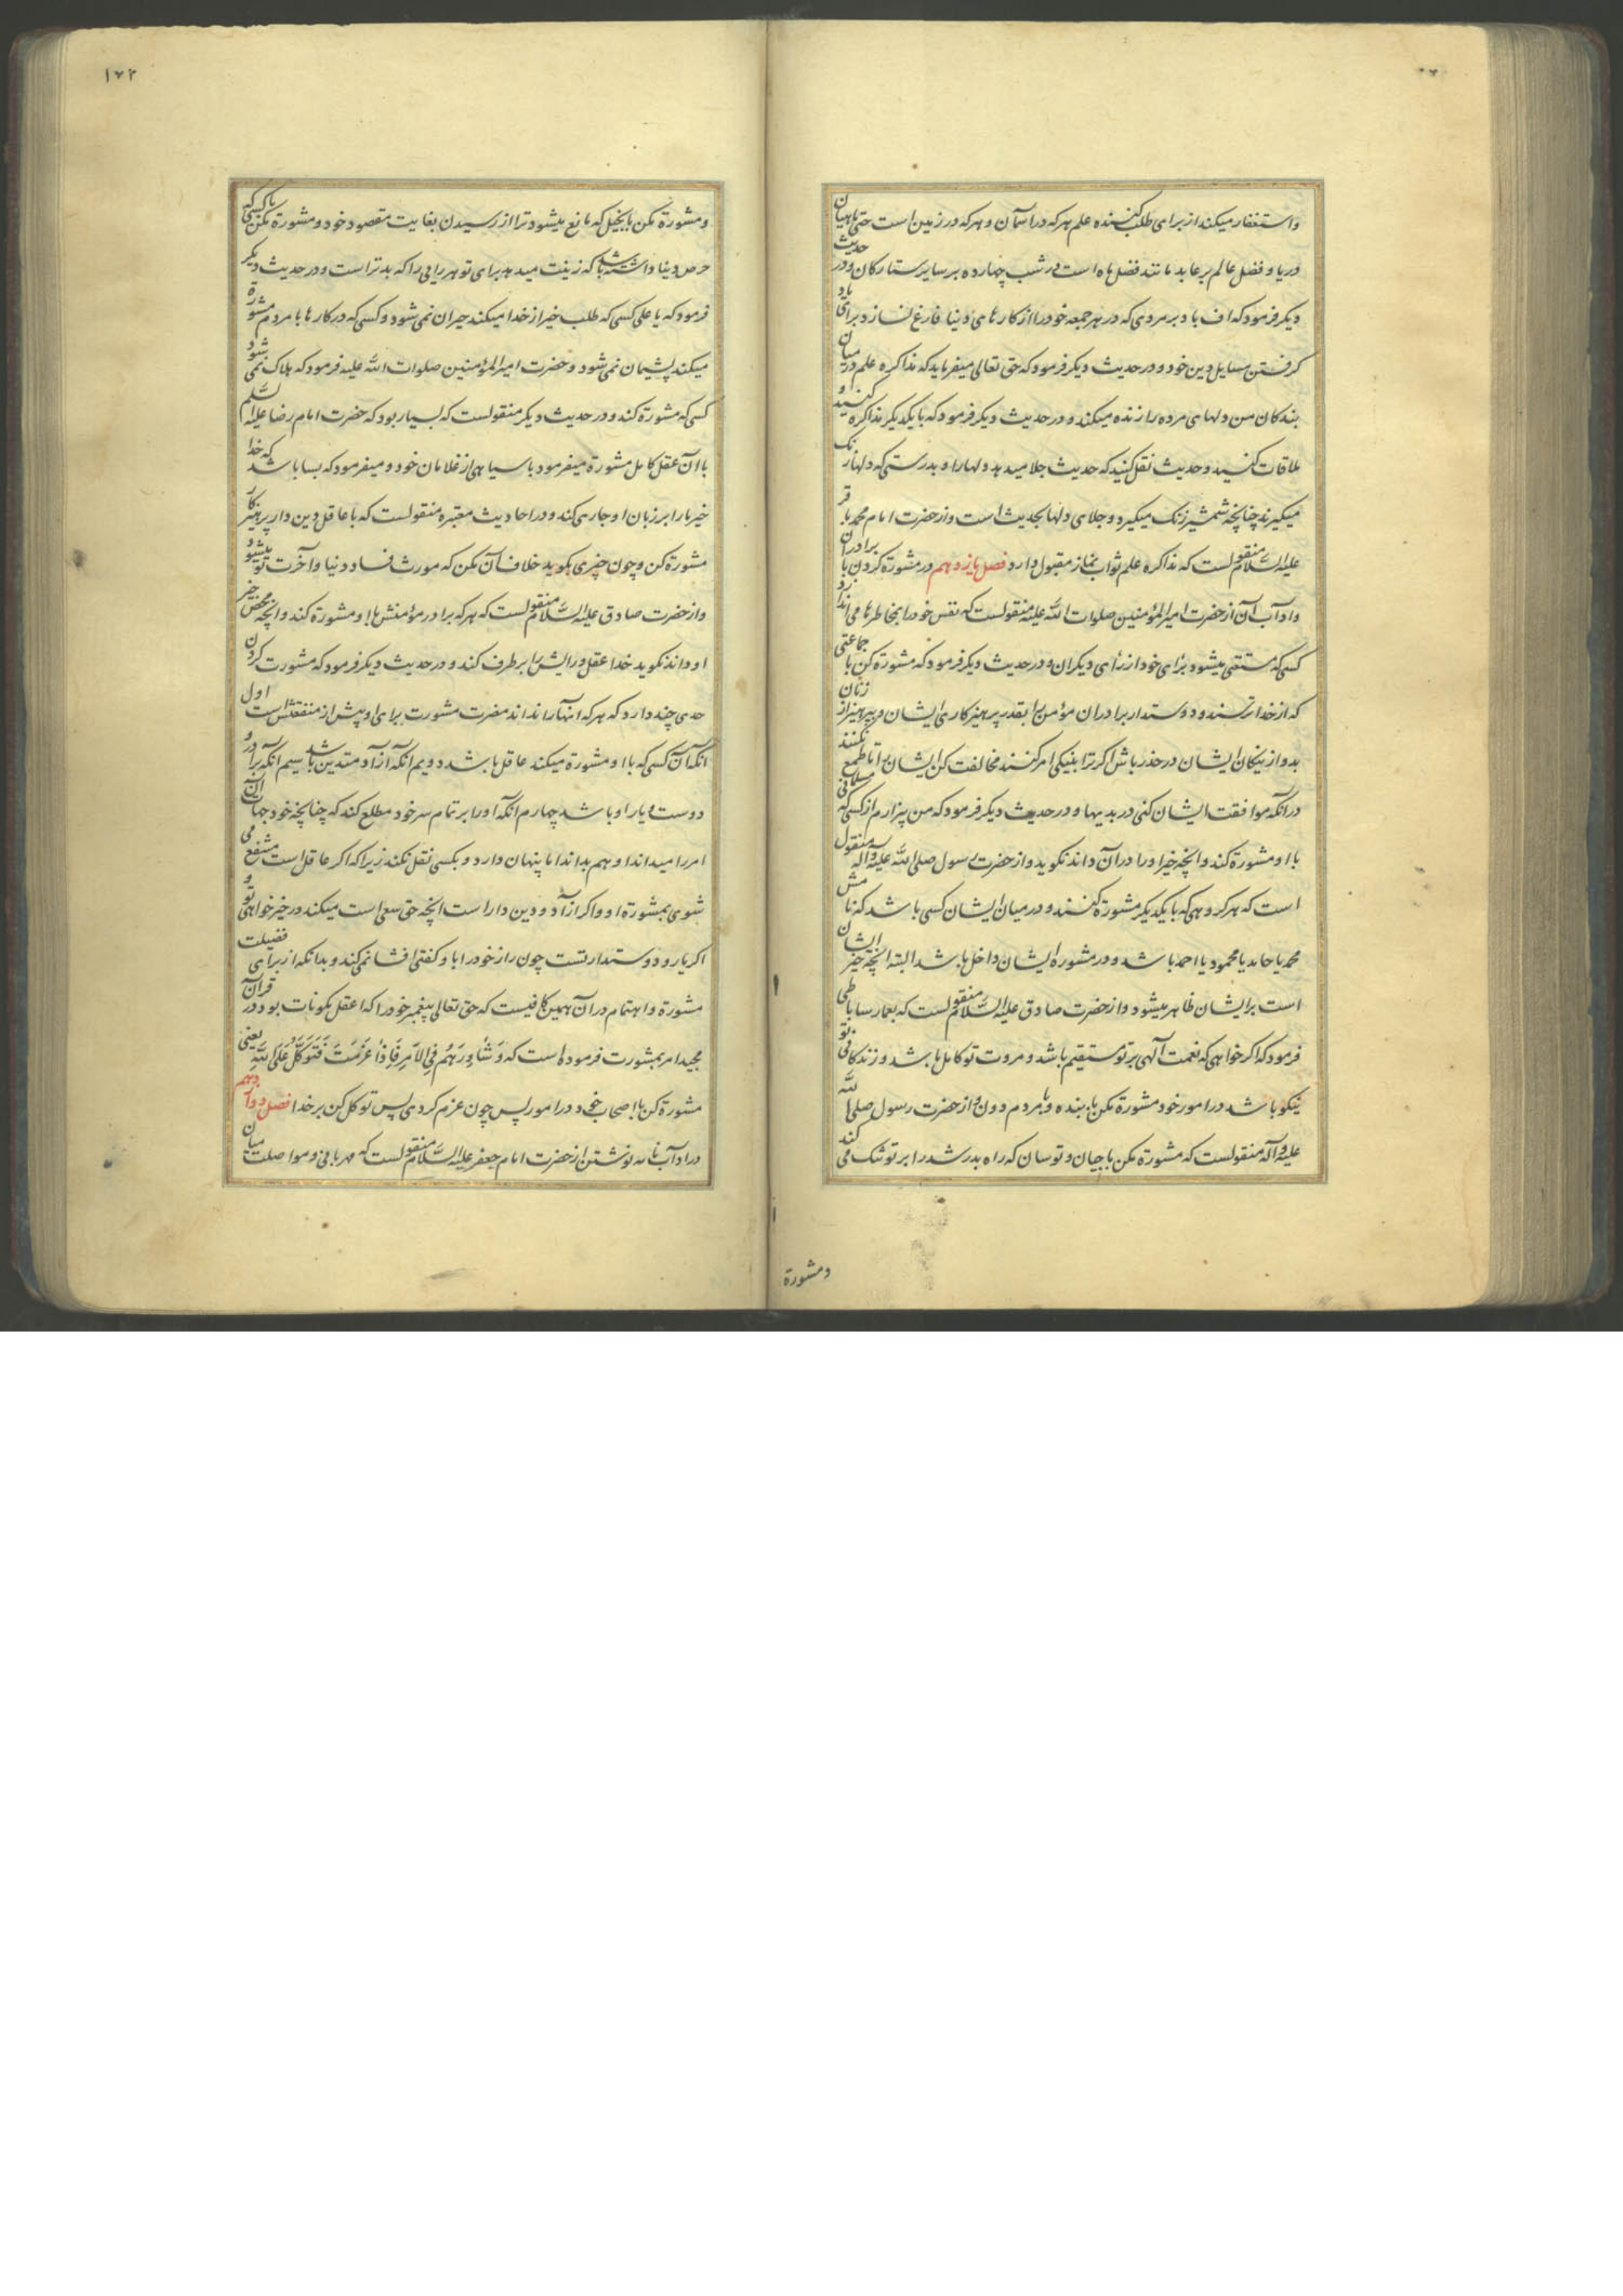 واستغفار میکنند از برای طلب کننده علم هر که در آسمان و هر که در زمین است حتی ماهیان
دریا و فضل عالم بر عابد مانند فضل ماه است در شب چهارده بر سایر ستارکان و در حدیث
دیکر فرمود که اف باد بر مردی که در هر جمعه خود را از کارهای دنیا فارغ نسازد برای یاد
کرفتن مسایل دین خود و در حدیث دیکر فرمود که حق تعالی میفرماید که مذاکره علم در میان
بندکان من دلهای مرده را زنده میکند و در حدیث دیکر فرمود که با یکدیکر مذاکره کنید و
ملاقات کنید و حدیث نقل کنید که حدیث جلا میدهد دلها را و بدرستی که دلها زنک
میکیرند چنانچه شمشیر زنک میکیرد و جلای دلها بحدیث است و از حضرت امام محمد باقر
علیه السلام منقولست که مذاکره علم ثواب نماز مقبول دارد فصل یازدهم در مشورة کردن با برادران
و آداب آن از حضرت امیر المؤمنین صلوات الله علیه منقولست که نفس خود را بمخاطرها می اندازد
کسی که مستغنی میشود برای خود از رأی دیکران و در حدیث دیکر فرمود که مشورة کن با جماعتی
که از خدا ترسند و دوستدار برادران مؤمن را بقدر پرهیزکاری ایشان و بپرهیز از زنان
بد و از نیکان ایشان در حذر باش اکر ترا بنیکی امر کنند مخالفت کن ایشان را تا طمع نکنند
در آنکه موافقت ایشان کنی در بدیها و در حدیث دیکر فرمود که من بیزارم از کسی که مسلمانی
با او مشورة کند و آنچه خیر او را در آن داند نکوید و از حضرت رسول صلی الله علیه وآله منقول
است که هر کروهی که با یکدیکر مشورة کنند و در میان ایشان کسی باشد که نامش
محمد یا حامد یا محمود یا احمد باشد و در مشوره ایشان داخل باشد البته آنچه خیر ایشان
است بر ایشان ظاهر میشود و از حضرت صادق علیه السلام منقولست که بعمار ساباطی
فرمود که اکر خواهی که نعمت آلهی بر تو مستقیم باشد و مروت تو کامل باشد و زندکانی تو
نیکو باشد در امور خود مشورة مکن با بنده و با مردم دون و از حضرت رسول صلی الله
علیه وآله منقولست که مشورة مکن با جبان و ترسان که راه بدر شد را بر تو تنک می کند
و مشورة
۱۷۲
و مشورة مکن با بخیل که مانع میشود ترا از رسیدن بغایت مقصود خود و مشورة مکن با کسی که
حرص دنیا داشته باشد که زینت میدهد برای تو هر رایی را که بدتر است و در حدیث دیکر
فرمود که یا علی کسی که طلب خیر از خدا میکند حیران نمی شود و کسی که در کارها با مردم مشورة
میکند پشیمان نمی شود و حضرت امیر المؤمنین صلوات الله علیه فرمود که هلاک نمی شود
کسی که مشورة کند و در حدیث دیکر منقولست که بسیار بود که حضرت امام رضا علیه السلم
با آن عقل کامل مشورة میفرمود با سیاهی از غلامان خود و میفرمود که بسا باشد که خدا
خیر ما را بر زبان او جاری کند و در احادیث معتبره منقولست که با عاقل دین دار پرهیزکار
مشورة کن و چون چیزی بکوید خلاف آن مکن که مورث فساد دنیا و آخرت تو میشود
و از حضرت صادق علیه السلام منقولست که هر که برادر مؤمنش با او مشورة کند و آنچه محض خیر
او داند نکوید خدا عقل و رایش را برطرف کند و در حدیث دیکر فرمود که مشورت کردن
حدی چند دارد که هر که آنها را نداند مضرت مشورت برای او پیش از منفعتش است اول
آنکه آن کسی که با او مشورة میکند عاقل باشد دویم آنکه آزاد متدین باشد سیم آنکه برادر و
دوست و یار او باشد چهارم آنکه او را بر تمام سر خود مطلع کند که چنانچه خود جهات آن
امر را میداند او هم بداند اما پنهان دارد و بکسی نقل نکند زیرا که اکر عاقل است منتفع می
شوی بمشورة او و اکر آزاد و دین دار است آنچه حق سعی است میکند در خیرخواهی تو و
اکر یار و دوستدار تست چون راز خود را با او کفتی افشا نمی کند و بدانکه از برای فضیلت
مشورة و اهتمام در آن همین کافیست که حق تعالی پیغمبر خود را که اعقل مکونات بود در قرآن
مجید امر بمشورت فرموده است که وَشَاوِرْهُم فِی الاَمْرِ فَاِذَا عَزَمْتَ فَتَوَکَّلْ عَلَی اللهِ یعنی
مشورة کن با اصحاب خود در امور پس چون عزم کردی پس توکل کن بر خدا فصل دوازدهم
در آداب نامه نوشتن از حضرت امام جعفر علیه السلام منقولست که مهربانی و مواصلت میان